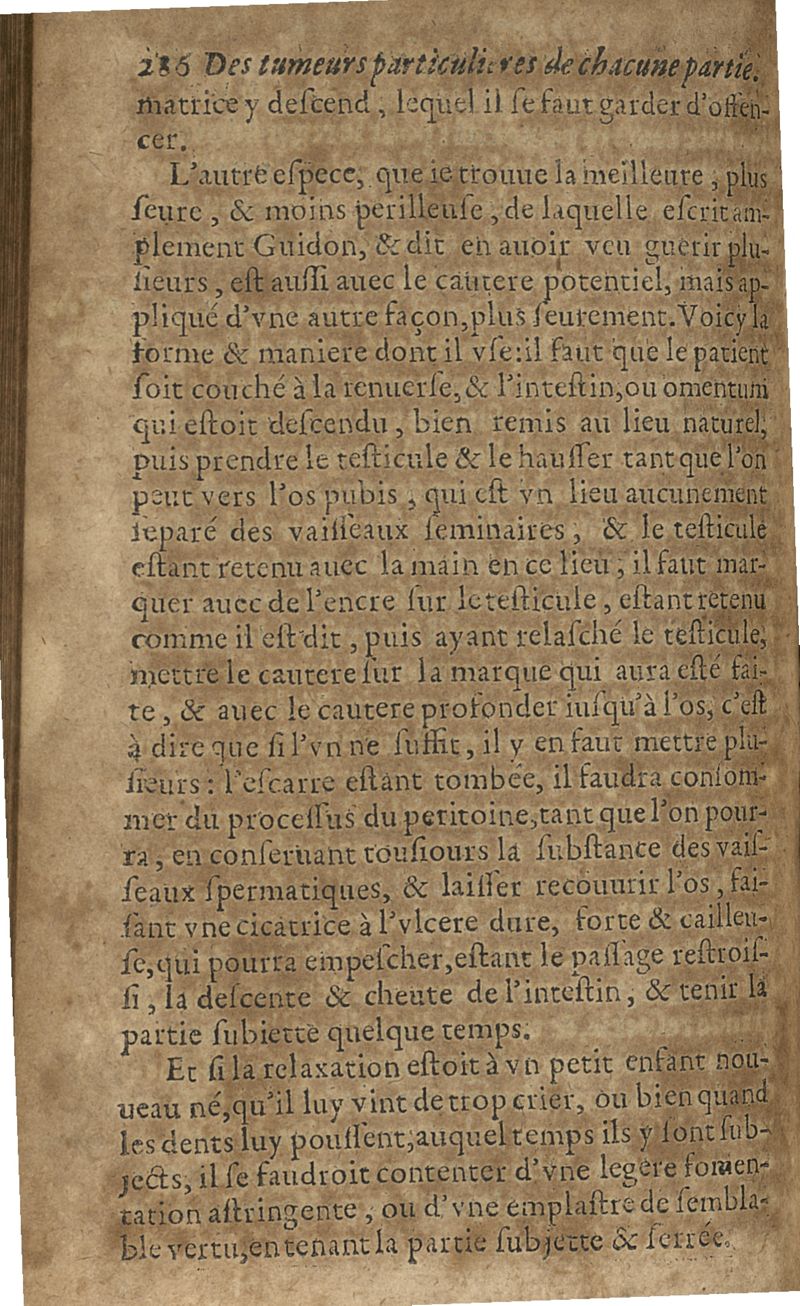 286 Des tumeurs particulieres de chacune partie.
matrice y deſcend, lequel il ſe faut garder d'offen-
cer.
L'autre eſpece, que ie trouue la meilleure, plus
ſeure, & moins perilleuſe, de laquelle eſcrit am-
plement Guidon, & dit en auoir veu guerir plu-
ſieurs, eſt auſſi auec le cautere potentiel, mais ap-
pliqué d'vne autre façon, plus ſeurement. Voicy la
forme & maniere dont il vſe: il faut que le patient
ſoit couché à la renuerſe, & l'inteſtin, ou omentum
qui eſtoit deſcendu, bien remis au lieu naturel,
puis prendre le teſticule & le hauſſer tant que l'on
peut vers l'os pubis, qui eſt vn lieu aucunement
ſeparé des vaiſſeaux ſeminaires, & le teſticule
eſtant retenu auec la main en ce lieu, il faut mar-
quer auec de l'encre ſur le teſticule, eſtant retenu
comme il eſt dit, puis ayant relaſché le teſticule,
mettre le cautere ſur la marque qui aura eſté fai-
te, & auec le cautere profonder iuſqu'à l'os, c'eſt
à dire que ſi l'vn ne ſuffit, il y en faut mettre plu-
ſieurs: l'eſcarre eſtant tombée, il faudra conſom-
mer du proceſſus du peritoine, tant que l'on pour-
ra, en conſeruant touſiours la ſubſtance des vaiſ-
ſeaux ſpermatiques, & laiſſer recouurir l'os, fai-
ſant vne cicatrice à l'vlcere dure, forte & cailleu-
ſe, qui pourra empeſcher, eſtant le paſſage reſtroiſ-
ſi, la deſcente & cheute de l'inteſtin, & tenir la
partie ſubiette quelque temps.
Et ſi la relaxation eſtoit à vn petit enfant nou-
ueau né, qu'il luy vint de trop crier, ou bien quand
les dents luy pouſſent, auquel temps ils y ſont ſub-
jects, il ſe faudroit contenter d'vne legere fomen-
tation aſtringente, ou d'vne emplaſtre de ſembla-
ble vertu, en tenant la partie ſubjette & ſerrée.